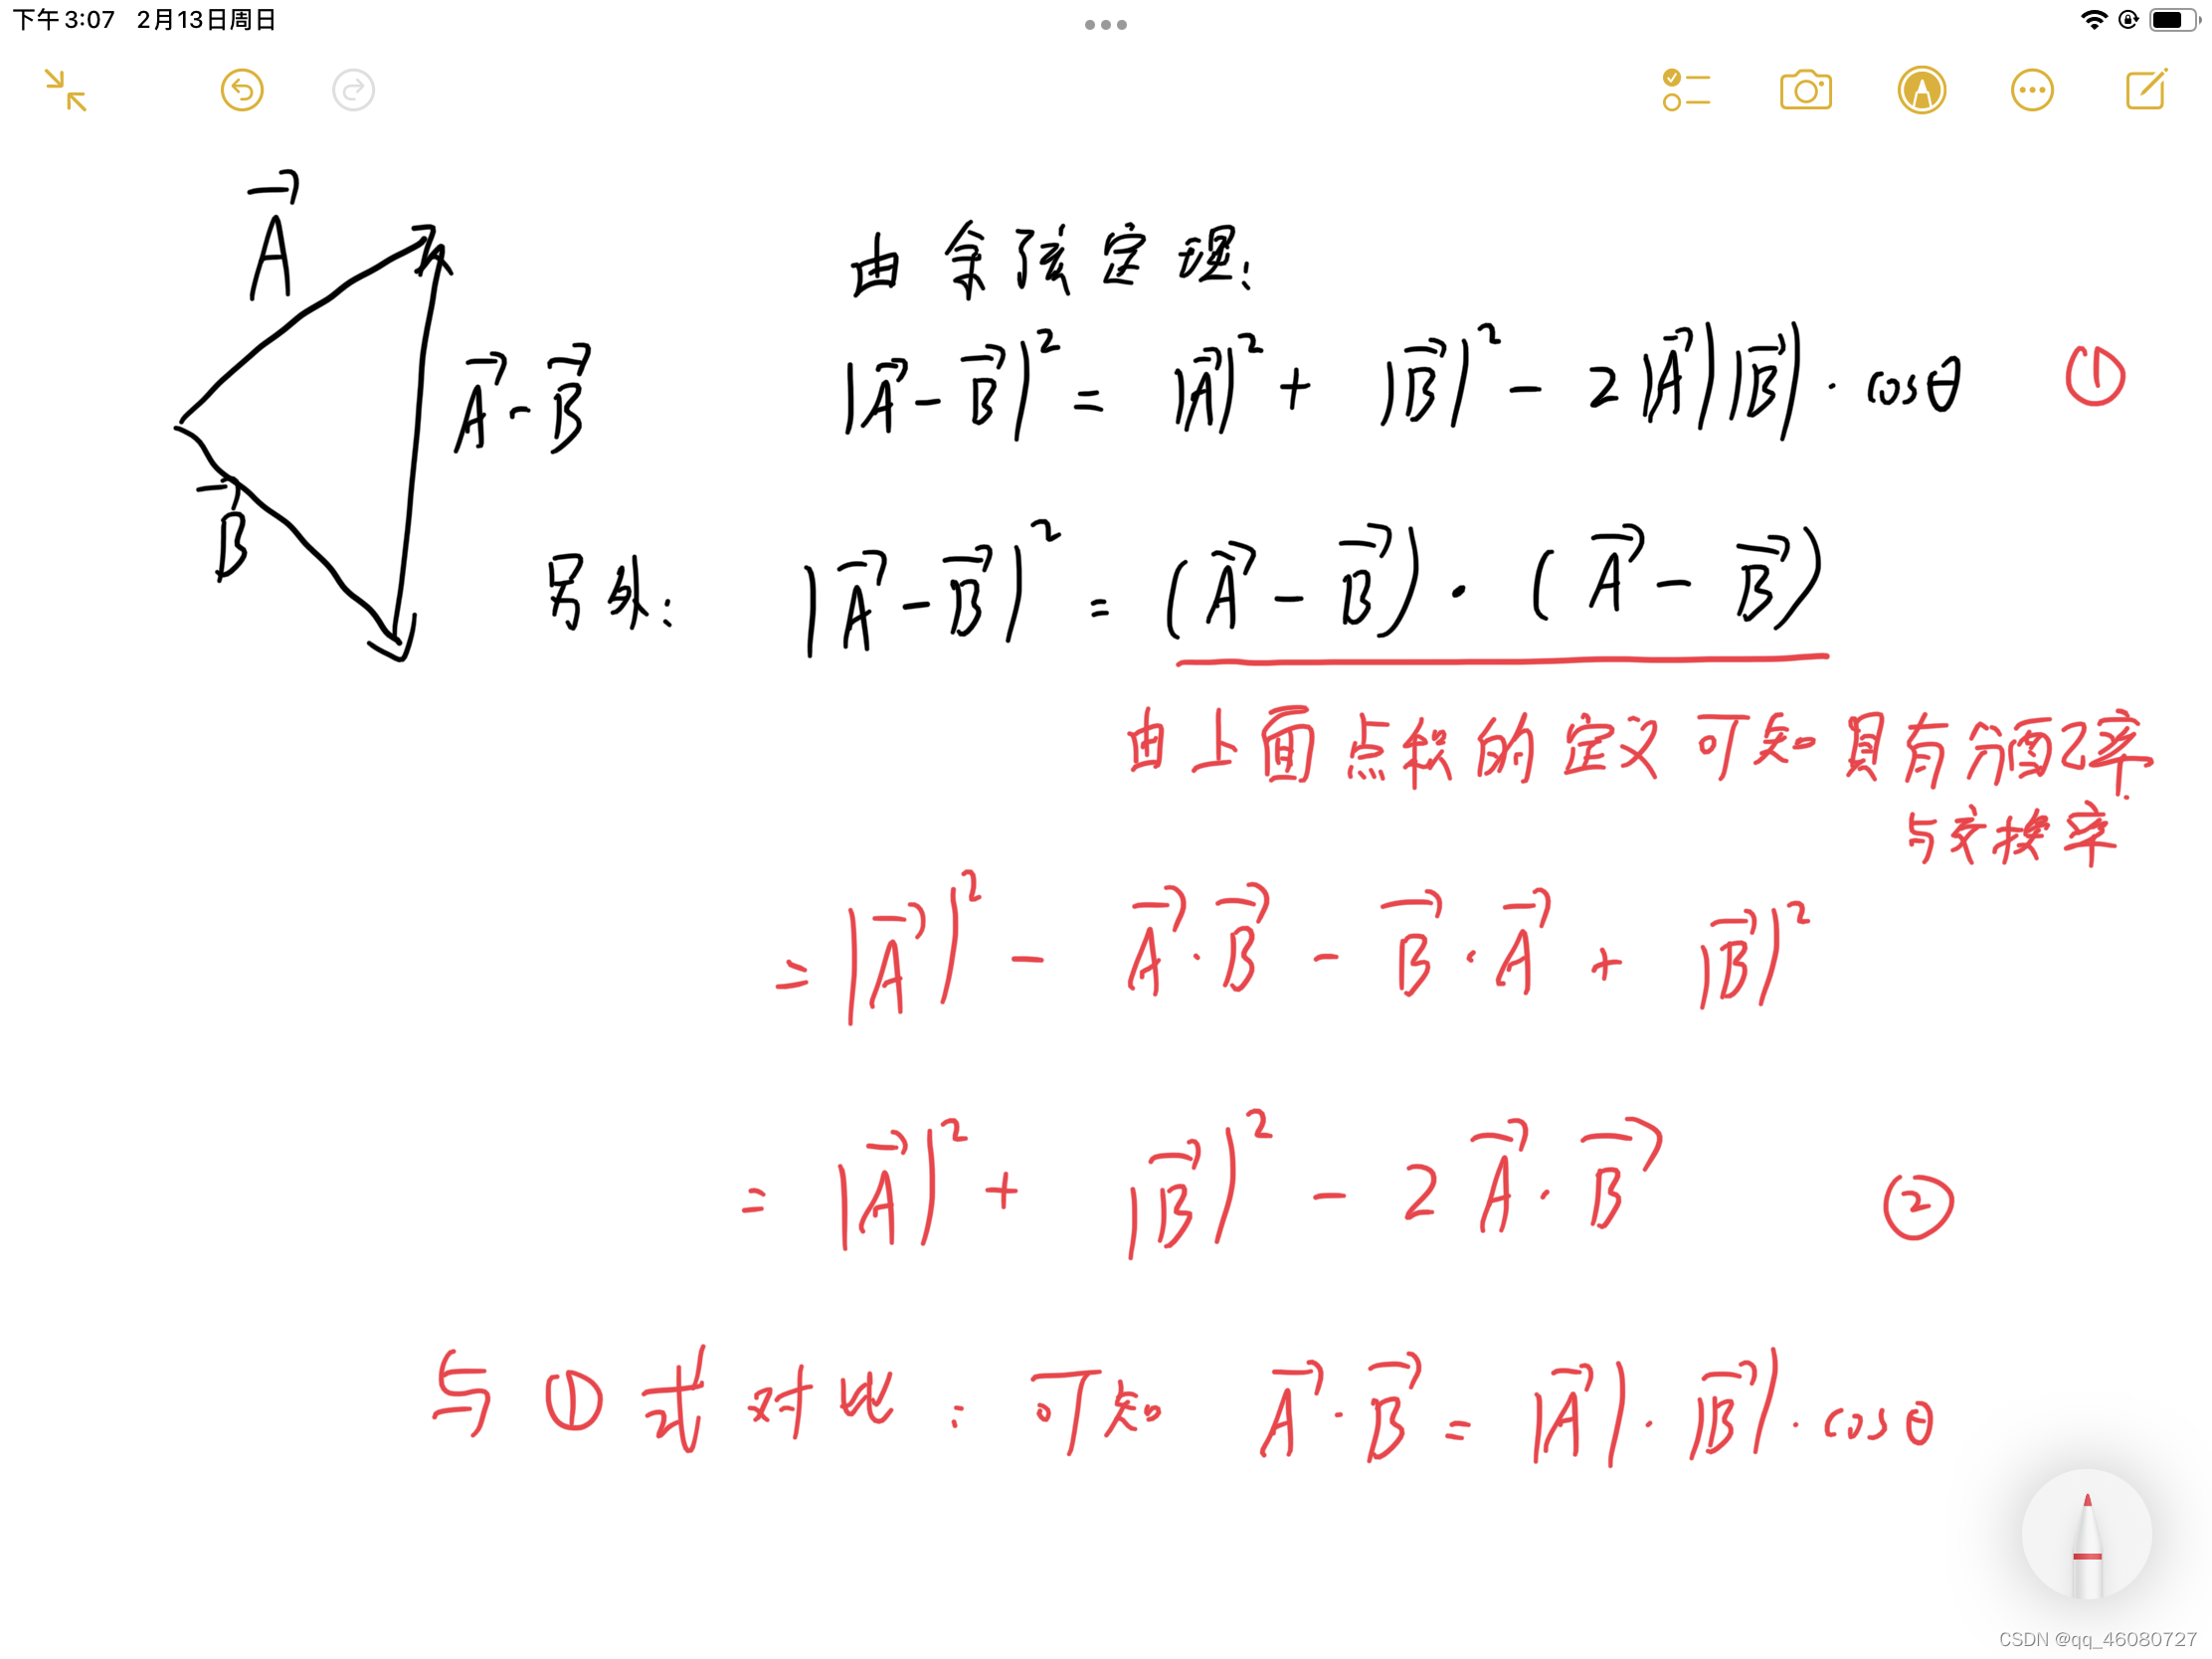 下午3:07 2月13日周日
A⃗
B⃗
A⃗-B⃗
由余弦定理:
|A⃗-B⃗|² = |A⃗|² + |B⃗|² - 2|A⃗||B⃗|·cosθ ①
另外: |A⃗-B⃗|² = (A⃗-B⃗)·(A⃗-B⃗)
由上面点积的定义可知具有分配率
与交换率
=|A⃗|² - A⃗·B⃗ - B⃗·A⃗ + |B⃗|²
= |A⃗|² + |B⃗|² - 2A⃗·B⃗ ②
与①式对比: 可知 A⃗·B⃗ = |A⃗|·|B⃗|·cosθ
CSDN @qq_46080727